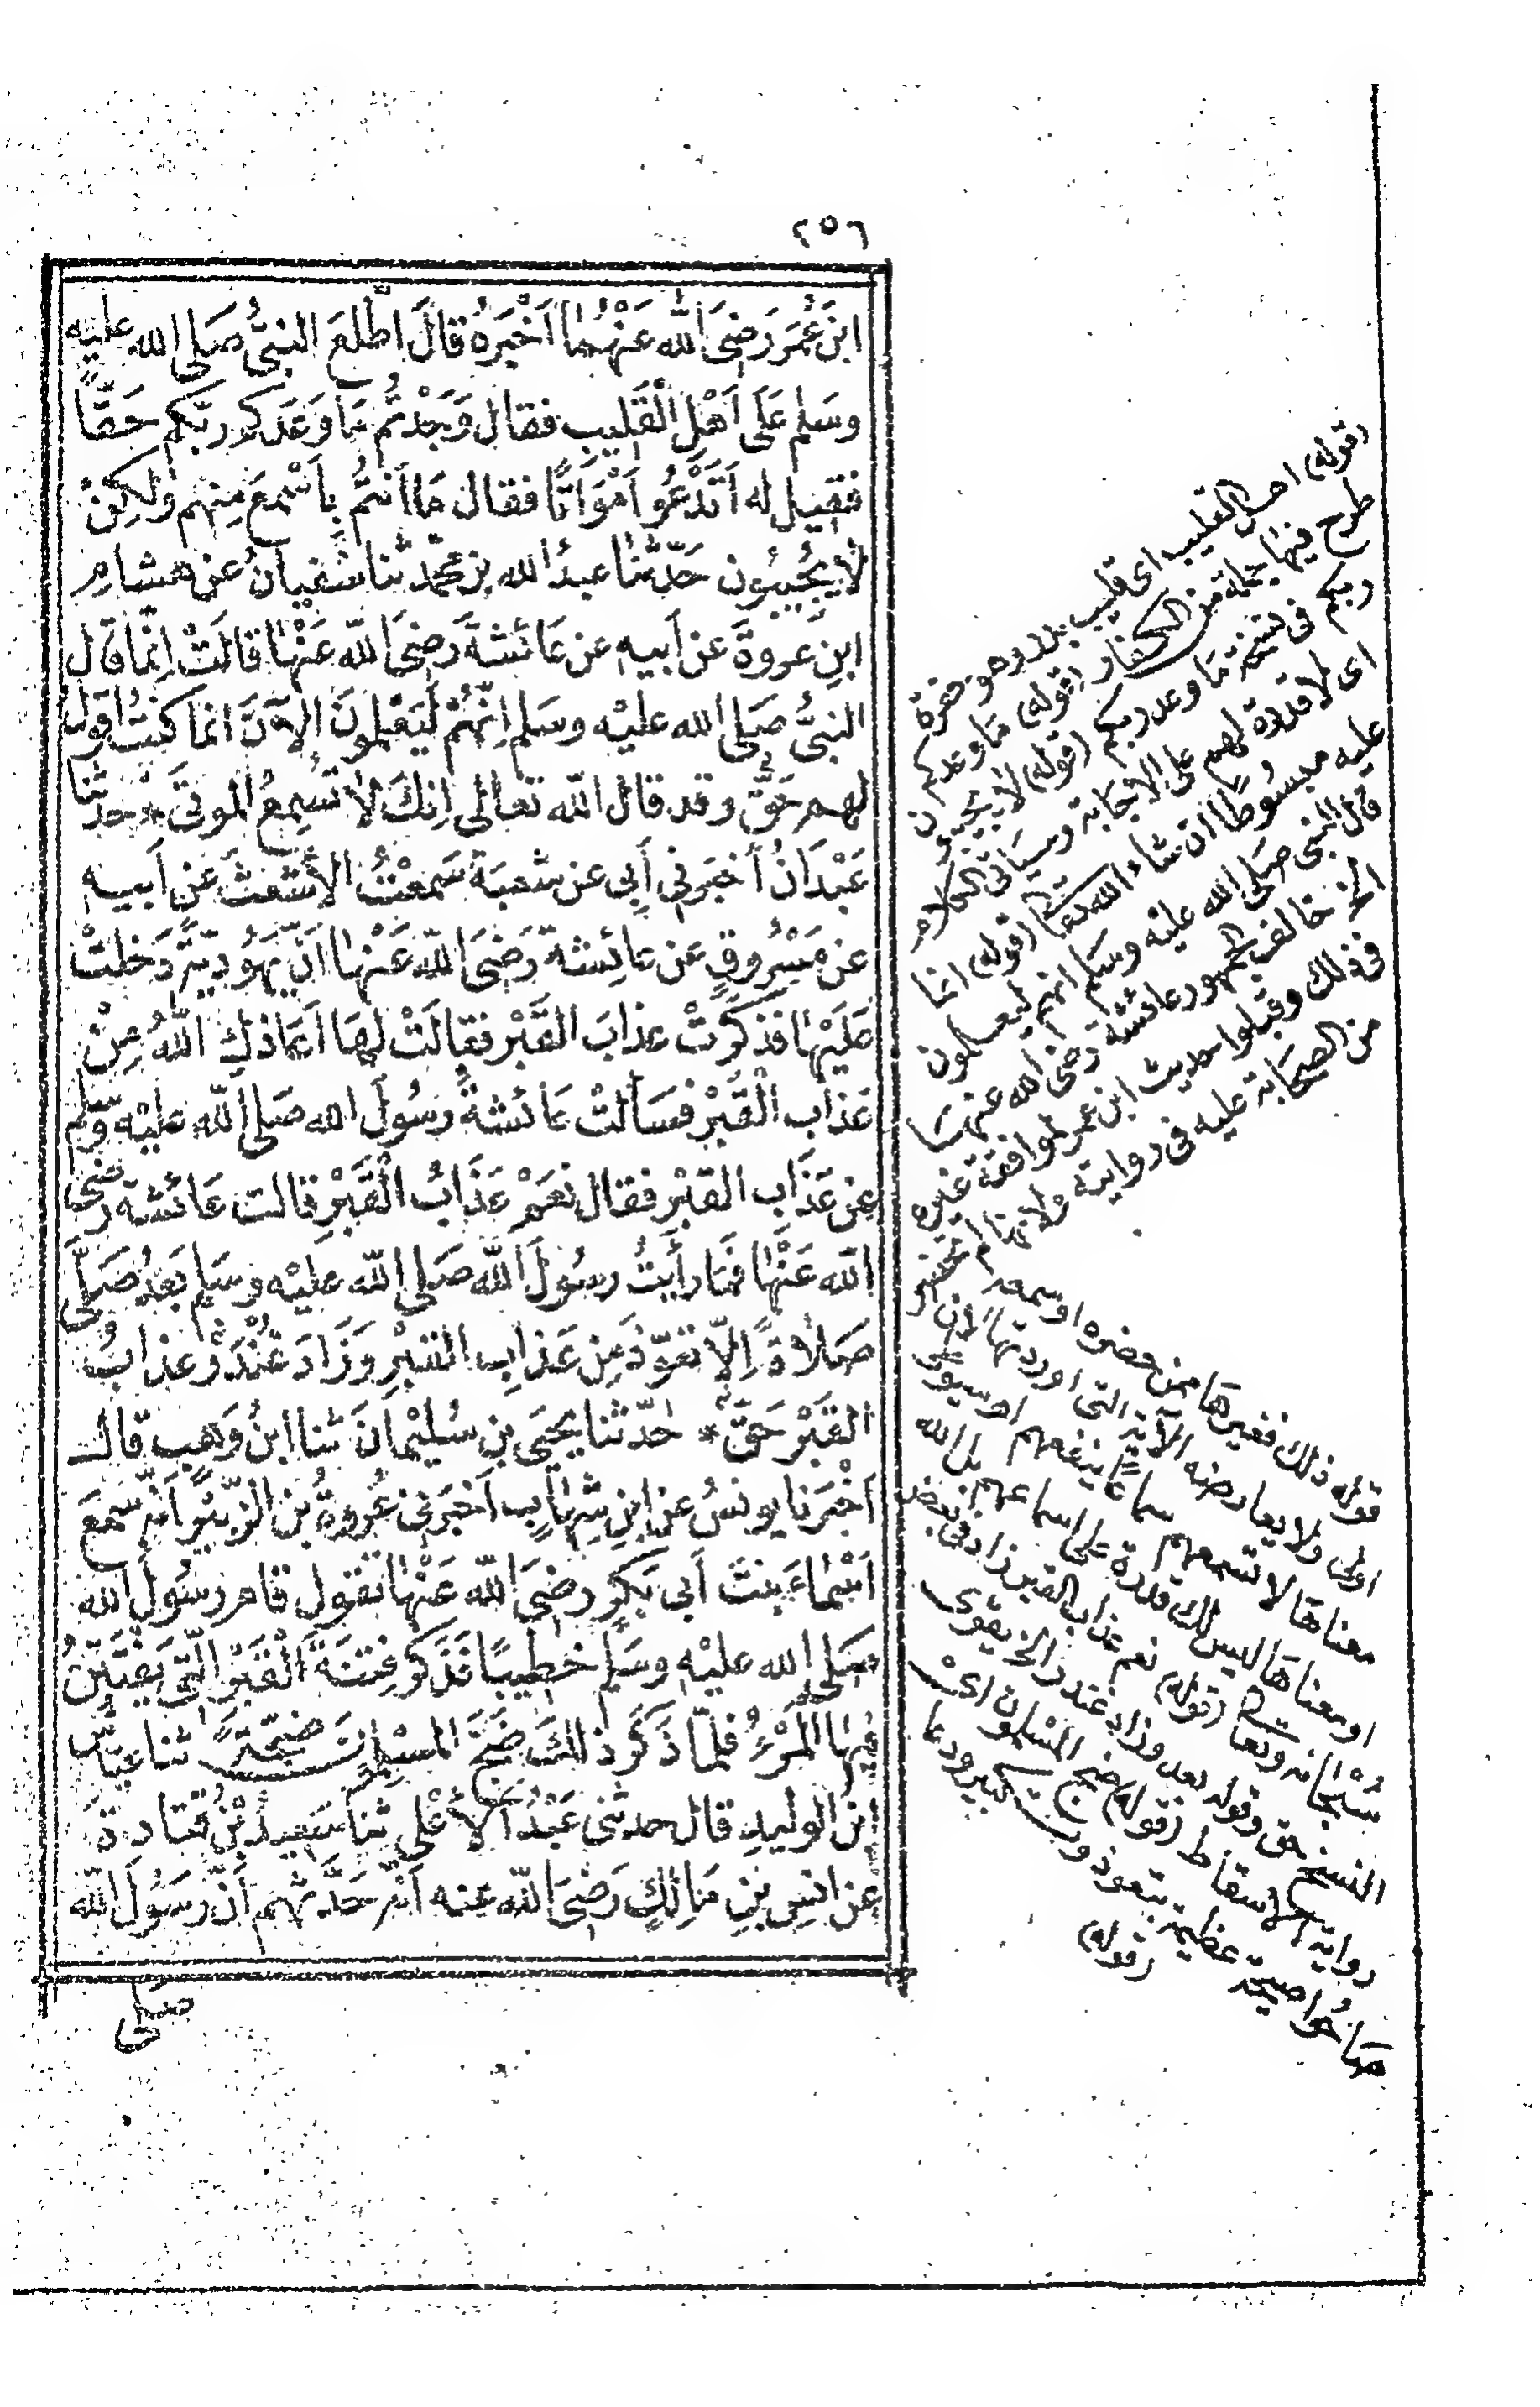 ٢٥٦
ابنَ عُمَرَ رَضِىَ اللّه عَنْهُمَا اَخْبَرَهُ قالَ اطَّلَعَ النبىُّ صَلى الله عليه
وسَلم عَلَى اَهْلِ الْقَلِيبِ فقال وَجَدْتُم مَا وَعَدَكم ربّكم حَقّاً
فقيل له أَتَدْعُو اَمْوَاتًا فقال مَا اَنتُمْ بِاَسْمَعَ مِنهم ولٰكِنْ
لاَ يُجيبُون حَدّثَنَا عبدُ الله بن محمّد ثنا سُفيانُ عن هشامِ
ابنِ عروةَ عن أبيهِ عن عَائشةَ رَضِىَ اللّه عَنْهَا قالَتْ اِنّمَا قال
النبىُّ صَلى الله عليْه وسَلم اِنّهُمْ لَيَعْلمُونَ الاٰنَ انما كنتُ اقولُ
لهم حَقّ وقد قال اللّه تعالى اِنكَ لاَ تُسْمِعُ الموتَى * حدثنا
عَبْدَانُ أخبَرنِى أَبِى عن شعبَةَ سَمعْتُ الأشْعَثَ عَن أبيهِ
عن مَسْرُوقٍ عَن عائِشةَ رَضِىَ اللّه عَنْهَا اَنّ يَهُودِيّةً دَخلتْ
عَليْهَا فذكرَتْ عذابَ القَبْر فقالَتْ لهَا اَعَاذكِ اللّهُ مِنْ
عَذابِ الْقَبْرِ فسَالتْ عَائشةُ رَسُولَ الله صَلى اللّه عليْه وسَلم
عن عَذَابِ القبْرِ فقال نعَمْ عَذَابُ الْقَبْرِ قالت عَائشة رضى
اللّه عَنْهَا فمَا رأيتُ رسُولَ اللّه صَلى اللّه عليْه وسَلم بَعدُ صَلّى
صَلاَةً اِلاّ تعوّذَ مِن عَذابِ القبْرِ وَزَادَ غُنْدَرٌ عذابُ
القبْرِ حَقّ * حَدّثنا يَحْيَى بن سُليْمانَ ثنا ابنُ وَهبٍ قال
اَخْبَرَنا يونسُ عن ابنِ شِهَابٍ اَخبَرَنِى عُروةُ بن الزبَيْرِ اَنّهُ سَمعَ
اَسْماءَ بِنتَ أبى بَكرٍ رضىَ اللّه عَنْهَا تقول قام رسُولُ الله
صَلى الله عليْه وسَلم خطِيبًا فذَكرَ فِتنَةَ الْقَبْرِ الّتِى يَفتَتِنُ
فِيهَا المَرْءُ فلمّا ذَكَرَ ذلك ضَجّ المسْلِمونَ ضَجّةً ثنا عيّاش
بن الوليد قال حدثنى عَبْدُ الأعْلى ثنا سَعِيدٌ عن قتادةَ
عن انَسِ بنِ مَالِكٍ رَضىَ اللّه عنه اَنّهُ حَدّثهم اَنّ رَسُولَ اللّه
صلى
(قوله) اهل القليب اى قليب بدر وهو حفرة
طرح فيها جملة من الكفار (قوله) مَا وعدكم
ربكم فى نسخة مَا وعد ربكم (قوله) لا يجيبون
اى لا قدرة لهم على الاجابة وسيأتى الكلام
عليه مبسوطًا ان شاء الله تعالى (قوله) انما
قال النبى صَلى الله عليْه وسَلم انهم ليعلمون
الخ خالف الجمهور عائشة رضى الله عنها
فى ذلك وقبلوا حديث ابن عمر لموافقة غيره
من الصحَابة عليه فى روايته ولانها لم تحضر
قوله ذلك فغيرها ممن حضره او سمعه
اولى ولا يعارضه الآية التى اوردتها لان
معناهَا لا تسمعهم سماعًا ينفعهم او سيق
او معناهَا ليس لك قدرة على اسماعهم بل الله
سُبْحانه وتعالى (قوله) نعم عذاب القبر زاد فى بعض
النسخ حق وقوله بعد وزاد غندر الخ يقوى
رواية الاسقاط (قوله) ضج المسْلمون اى
صَاحُوا صيحة عظيمة
(قوله)